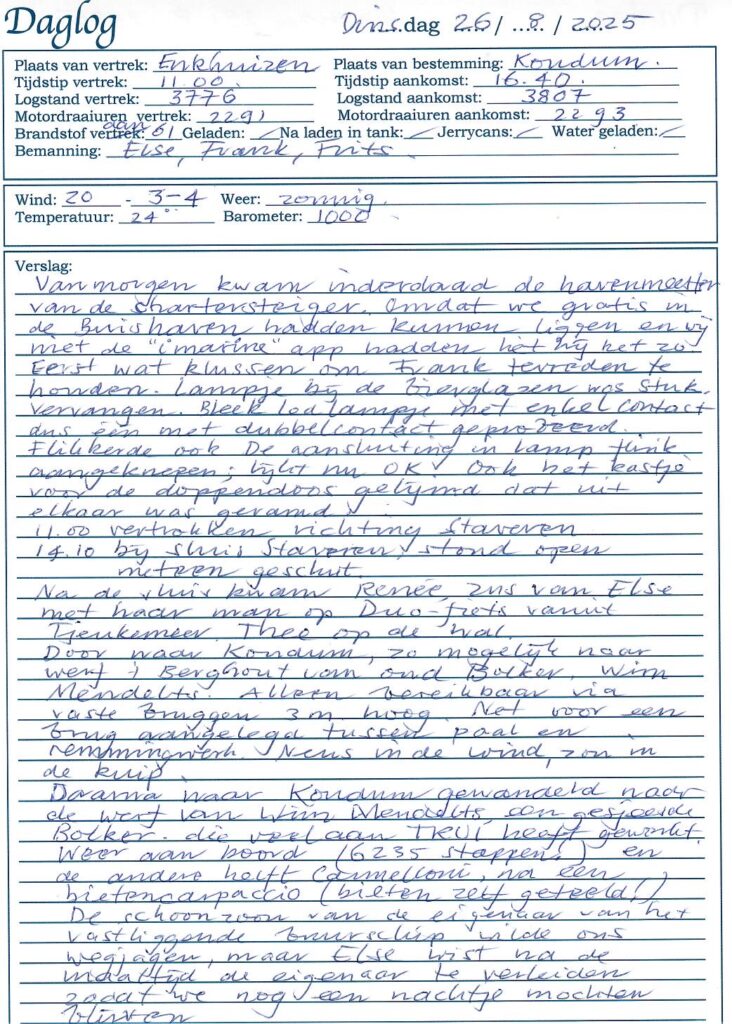 Daglog
Dins.dag 26/ ...8. / 2025
Plaats van vertrek: Enkhuizen Plaats van bestemming: Koudum.
Tijdstip vertrek: 11.00 Tijdstip aankomst: 16.40.
Logstand vertrek: 3776 Logstand aankomst: 3807
Motordraaiuren vertrek: 2291 Motordraaiuren aankomst: 2293
Brandstof vertrek: 61 Geladen: Na laden in tank: Jerrycans: Water geladen:
Bemanning: Else, Frank, Frits.
Wind: ZO - 3-4 Weer: zonnig.
Temperatuur: 24° Barometer: 1000
Verslag:
Vanmorgen kwam inderdaad de havenmeester
van de chartersteiger. Omdat we gratis in
de Buishaven hadden kunnen liggen en wij
niet de "imarine" app hadden liet hij het zo.
Eerst wat klussen om Frank tevreden te
houden. Lampje bij de bierglazen was stuk
vervangen. Bleek led lampje met enkel contact
dus één met dubbelcontact geprobeerd.
Flikkerde ook De aansluiting in lamp flink
aangeknepen; lijkt nu OK. Ook het kastje
voor de doppendoos gelijmd dat uit
elkaar was geramd.
11.00 vertrokken richting Staveren
14.10 bij sluis Staveren, stond open
meteen geschut.
Na de sluis kwam Renée, zus van Else
met haar man op Duo-fiets vanuit
Tjeukemeer. Theo op de wal.
Door naar Koudum, zo mogelijk naar
werf Berghout van oud Bolker, Wim
Mendelts. Alleen bereikbaar via
vaste bruggen 3m. hoog. Net voor een
brug aangelegd tussen paal en
remmingwerk. Neus in de wind, zon in
de kuip.
Daarna naar Koudum gewandeld naar
de werf van Wim Mendelts, een gesjeesde
Bolker. die veel aan TRUI heeft gewerkt.
Weer aan boord (6235 stappen!) en
de andere helft Cannelloni, na een
bietencarpaccio (bieten zelf geteeld!)
De schoonzoon van de eigenaar van het
vastliggende buurschip wilde ons
wegjagen, maar Else wist na de
maaltijd de eigenaar te verleiden
zodat we nog een nachtje mochten
blijven